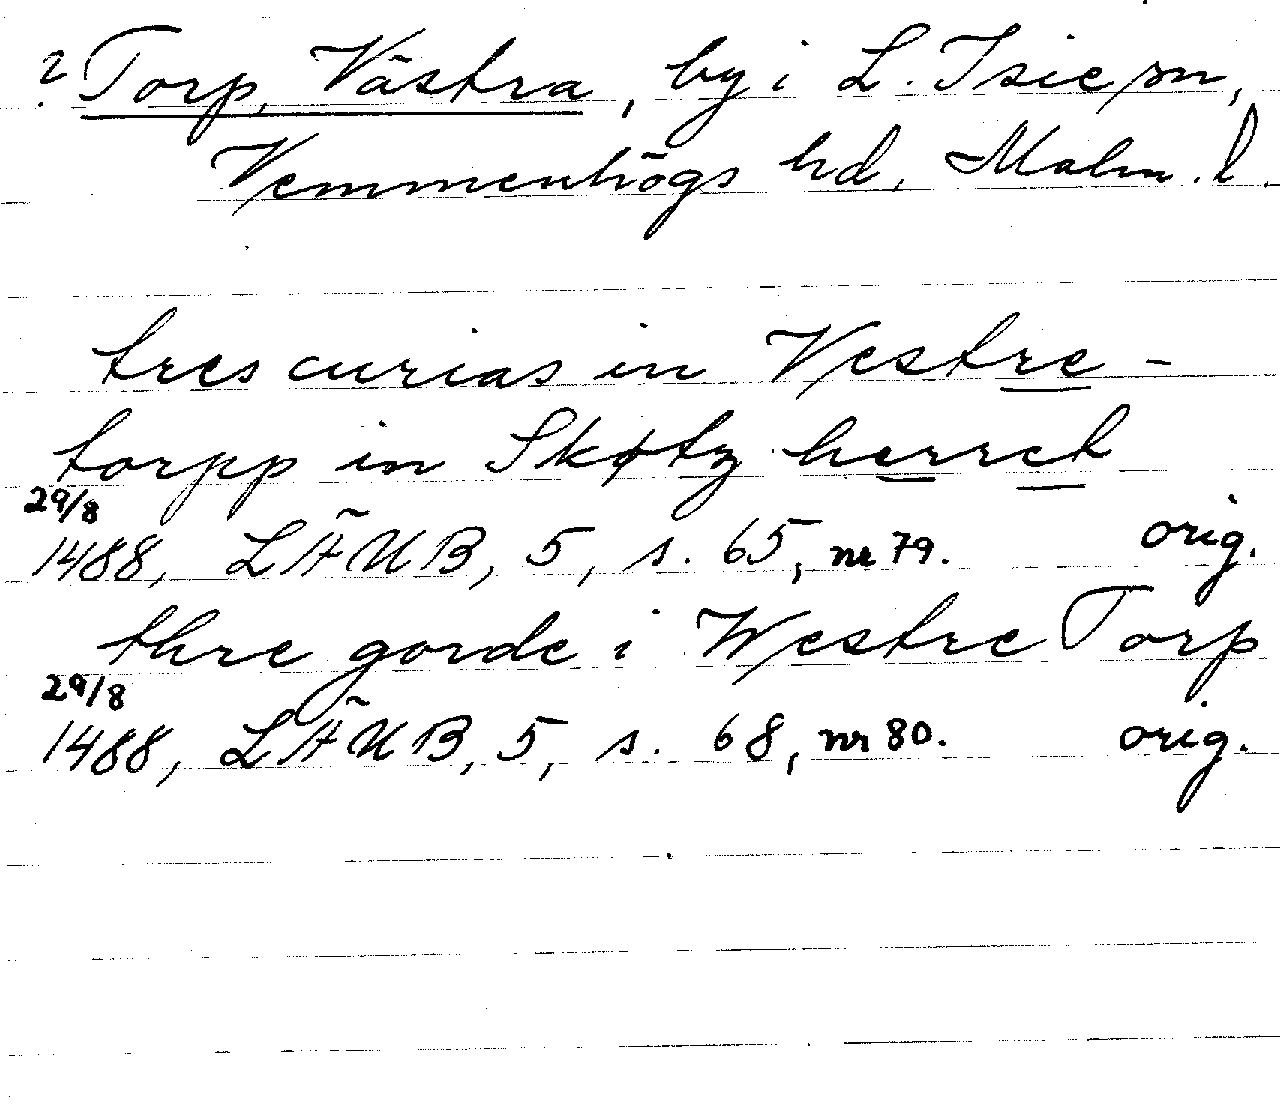 ? Torp, Västra, by i L. Isie sn,
Vemmenhögs hd, Malm. l.
tres curias in Vestre-
torpp in Skøtz herret
29/8
1488, LÄUB, 5, s. 65, nr 79. orig.
thre gorde i Westre Torp
29/8
1488, LÄUB, 5, s. 68, nr 80. orig.